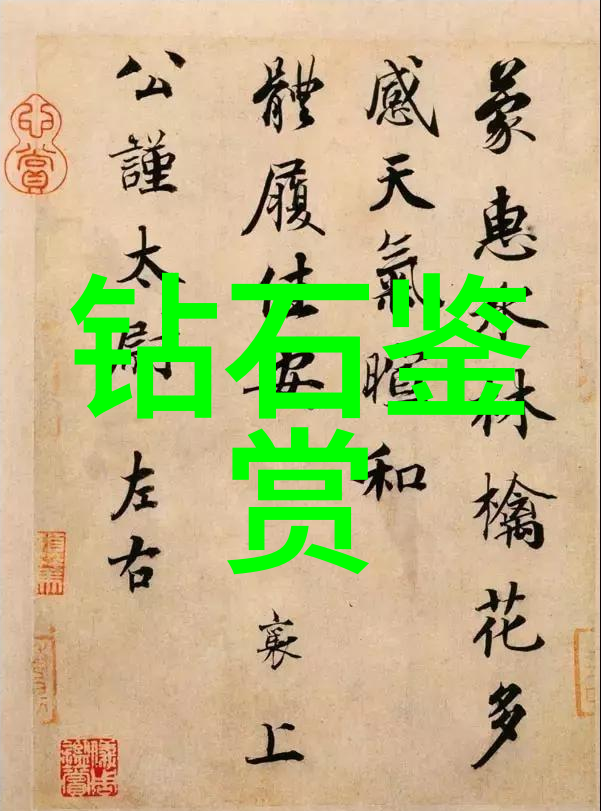 蒙惠水林檎花多
感天氣暄和
體履佳安 襄上
公謹太尉 左右
钻石鉴
赏